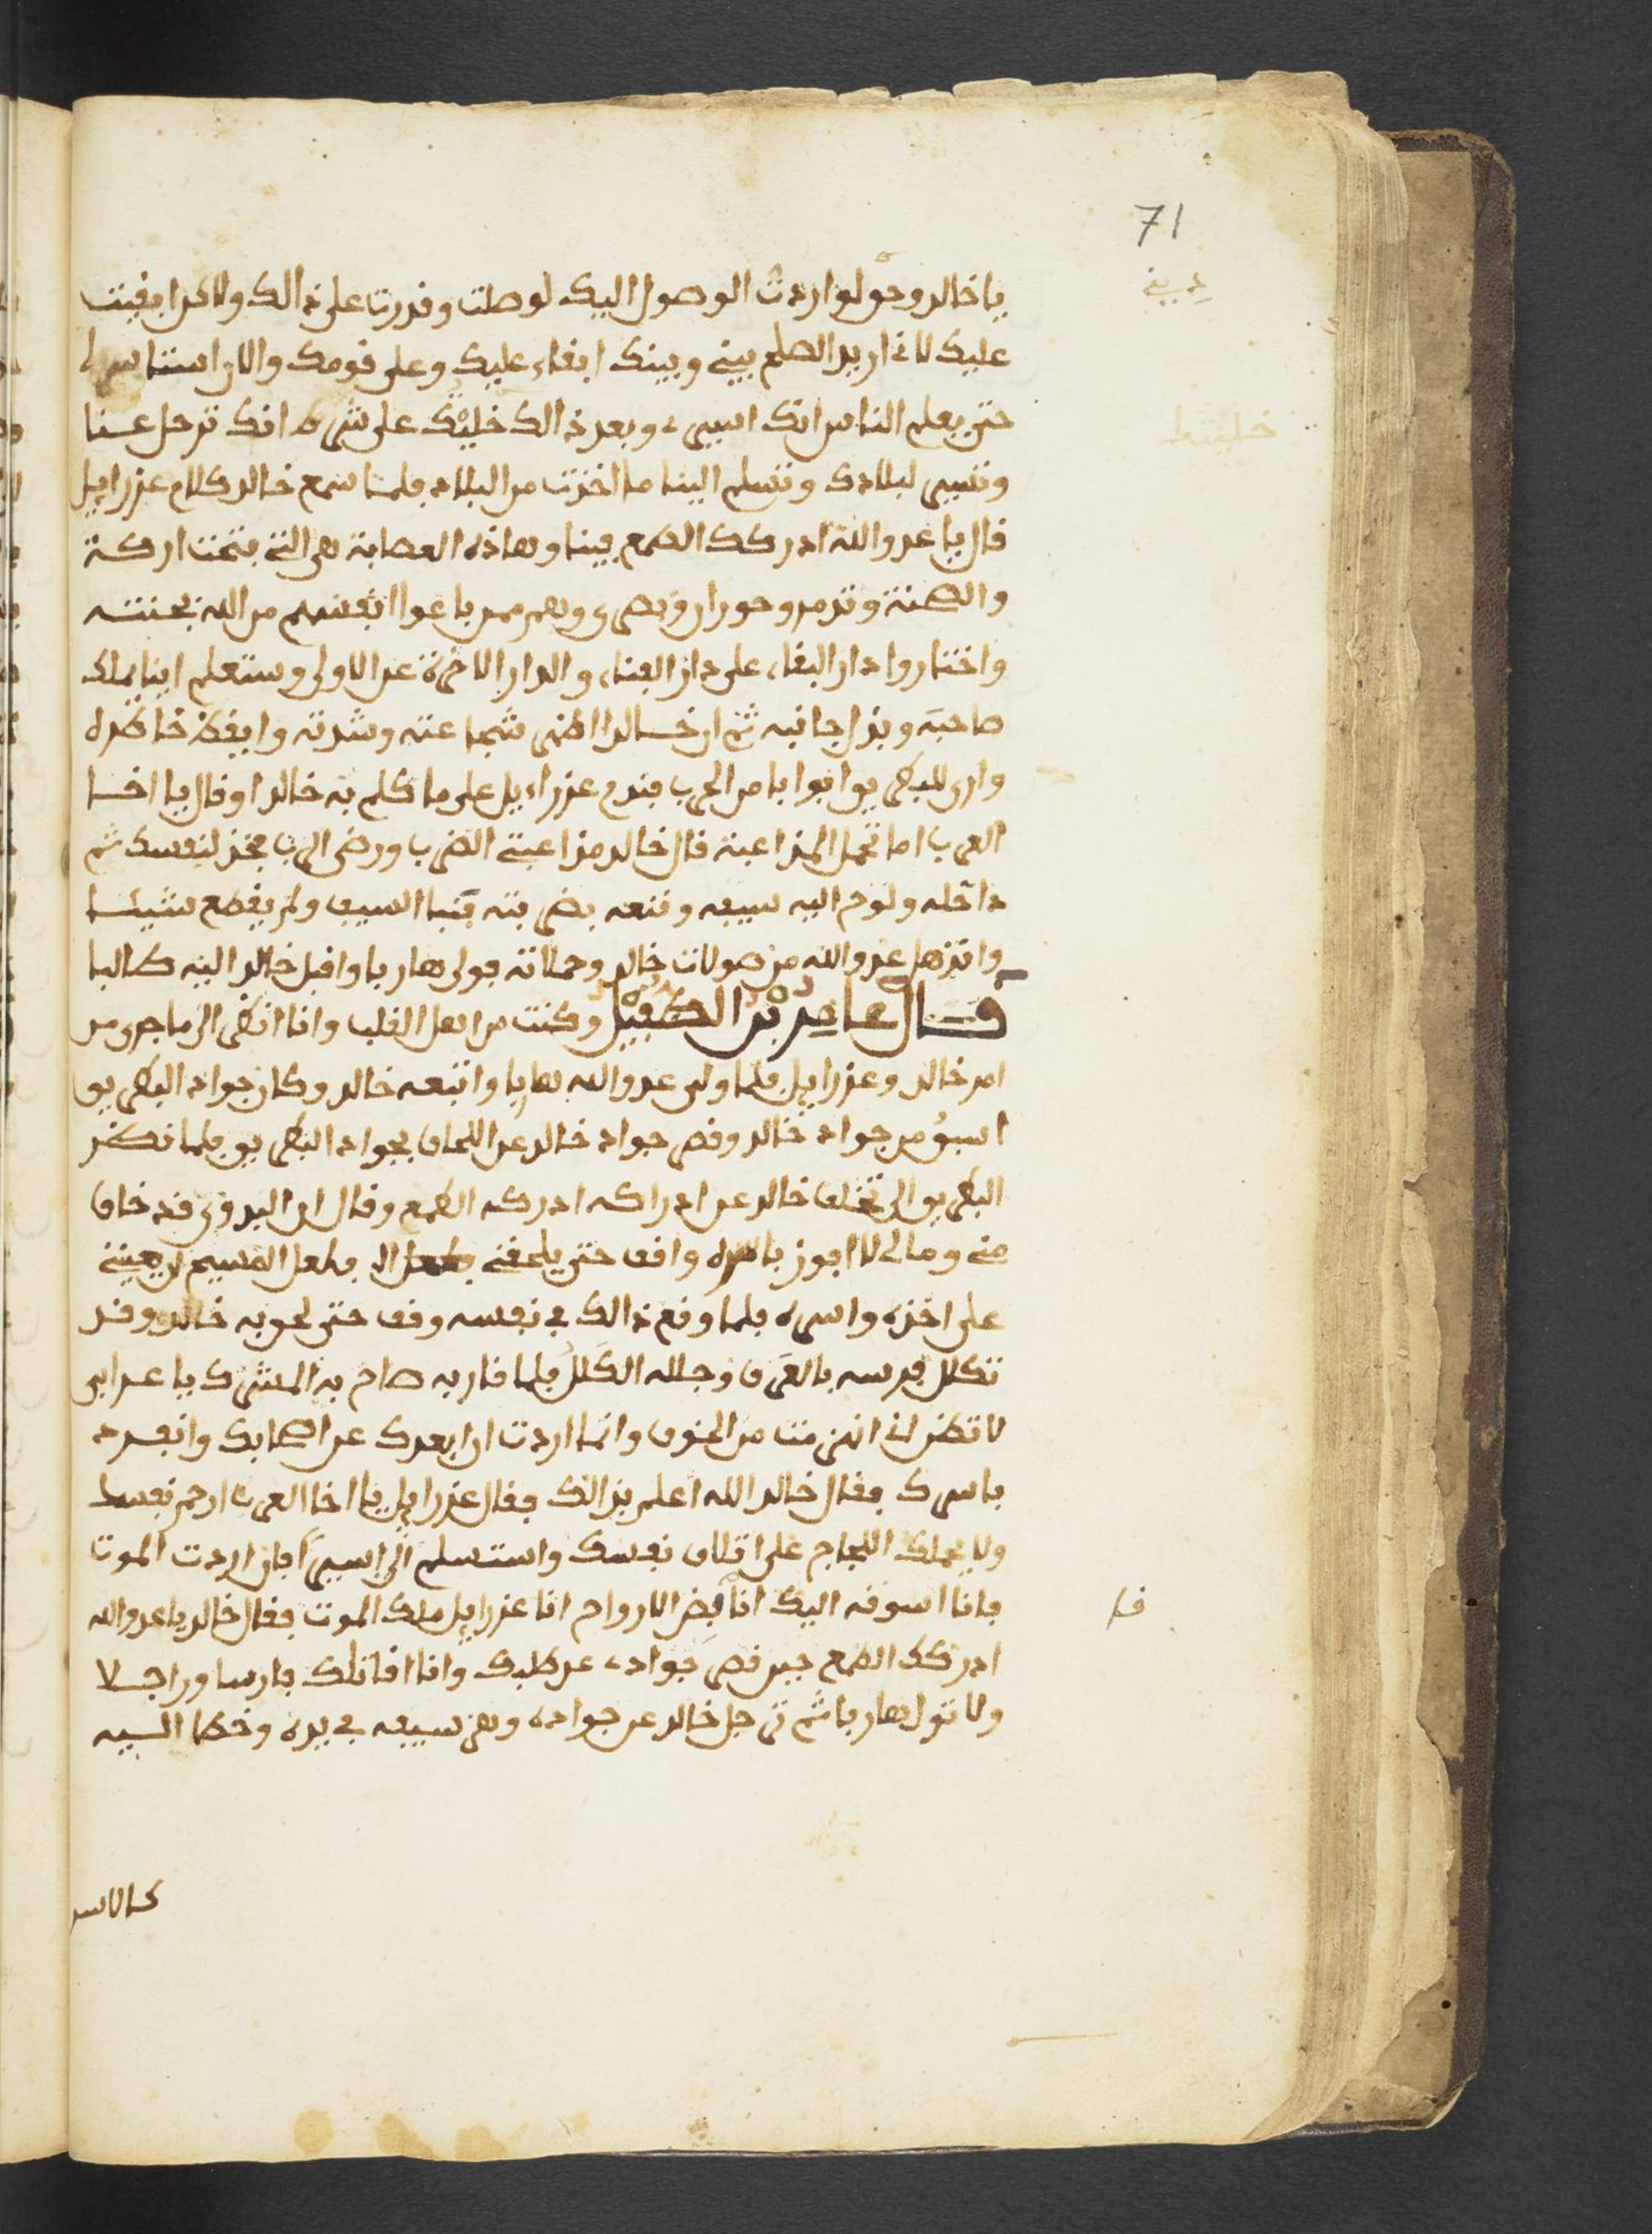 71
يا خالد وحق لو اردت الوصول اليك لوصلت وقدرت على ذالك ولاكن ابقيت
ديني
عليك لاني اريد الصلح بيني وبينك ابقاء عليك وعلى قومك والان استاسر لي
حتى يعلم الناس انك اسيري وبعد ذالك خليتك على شرط انك ترحل عنا
وتسير لبلادك وتسلم الينا ما اخذت من البلاد فلما سمع خالد كلام عزراييل
قال يا عدو الله ادركك الطمع فينا وهاذه العصابة هي التي فتحت اركة
والصخنة وتدمر وحوران وبصرى وهم ممن باعوا انفسهم من الله بجنته
واختاروا دار البقاء على دار الفناء والدار الاخرة عن الاولى وستعلم اينا يملك
صاحبه ويذل جانبه ثم ان خالدا اظهر شجاعته وشدته وايقظ خاطره
وارى للبطريق ابوابا من الحرب فندم عزراءيل على ما كلم به خالدا وقال يا اخا
العرب اما تحمل المزاعبة قال خالد مزاعبتي الضرب ورضى الرب فخذ لنفسك ثم
داخله ولوح اليه سيفه وقنعه بضربته فنبا السيف ولم يقطع شيئا
وانذهل عدو الله من صولات خالد وحملاته فولى هاربا واقبل خالد اليه طالبا
قال عامر بن الطفيل وكنت من اهل القلب وانا انظر الى ما جرى من
امر خالد وعزراييل فلما ولى عدو الله هاربا واتبعه خالد وكان جواد البطريق
اسبق من جواد خالد وقصر جواد خالد عن اللحاق بجواد البطريق فلما نظر
البطريق الى تخلف خالد عن ادراكه ادركه الطمع وقال ان البدوي قد خاف
مني ومالي لا افوز باسره واقف حتى يلحقني فلعل المسيح ان يعينني
على اخذه واسره فلما وقع ذالك في نفسه وقف حتى لحق به خالد وقد
تكلل فرسه بالعرق وجلله الكلل فلما قاربه صاح به المشرك يا عرابي
لا تظن اني انهزمت من الخوف وانما اردت ان ابعدك عن اصحابك وانفرد
باسرك فقال خالد الله اعلم بذالك فقال عزراييل يا اخا العرب ارحم نفسك
ولا يحملك اللجاج على اتلاف نفسك واستسلم الي اسيرا فان اردت الموت
فانا اسوقه اليك انا قبض الارواح انا عزراييل ملك الموت فقال خالد يا عدو الله
قا
ادركك الطمع حين قصر جوادي عن طلبك وانا اقاتلك فارسا وراجلا
ولا تول هاربا ثم ترجل خالد عن جواده وهز سيفه في يده وخطا اليه
كالاسد